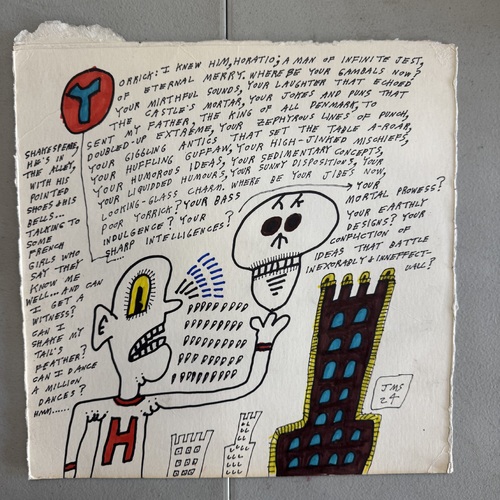 Y
ORRICK: I KNEW HIM, HORATIO; A MAN OF INFINITE JEST,
OF ETERNAL MERRY. WHERE BE YOUR GAMBALS NOW?
YOUR MIRTHFUL SOUNDS, YOUR LAUGHTER THAT ECHOED
THE CASTLE'S MORTAR, YOUR JOKES AND PUNS THAT
SENT MY FATHER, THE KING OF ALL DENMARK, TO
DOUBLED-UP EXTREME, YOUR ZEPHYROUS LINES OF PUNCH,
YOUR GIGGLING ANTICS THAT SET THE TABLE A-ROAR,
YOUR HUFFLING GUFFAW, YOUR HIGH-JINKED MISCHIEFS,
YOUR HUMOROUS IDEAS, YOUR SEDIMENTARY CONCEPTS,
YOUR LIQUIDDED HUMOURS, YOUR SUNNY DISPOSITIONS, YOUR
LOOKING-GLASS CHARM. WHERE BE YOUR JIBES NOW,
POOR YORRICK? YOUR BASS
INDULGENCE? YOUR
SHARP INTELLIGENCES?
YOUR
MORTAL PROWESS?
YOUR EARTHLY
DESIGNS? YOUR
CONFLICTION OF
IDEAS THAT BATTLE
INEXORABLY & INNEFFECT-
UALL?
SHAKESPEARE,
HE'S IN
THE ALLEY,
WITH HIS
POINTED
SHOES & HIS
BELLS...
TALKING TO
SOME
FRENCH
GIRLS WHO
SAY THEY
KNOW ME
WELL... AND CAN
I GET A
WITNESS?
CAN I
SHAKE MY
TAIL'S
FEATHER?
CAN I DANCE
A MILLION
DANCES?
HMM......
H
JMS
24